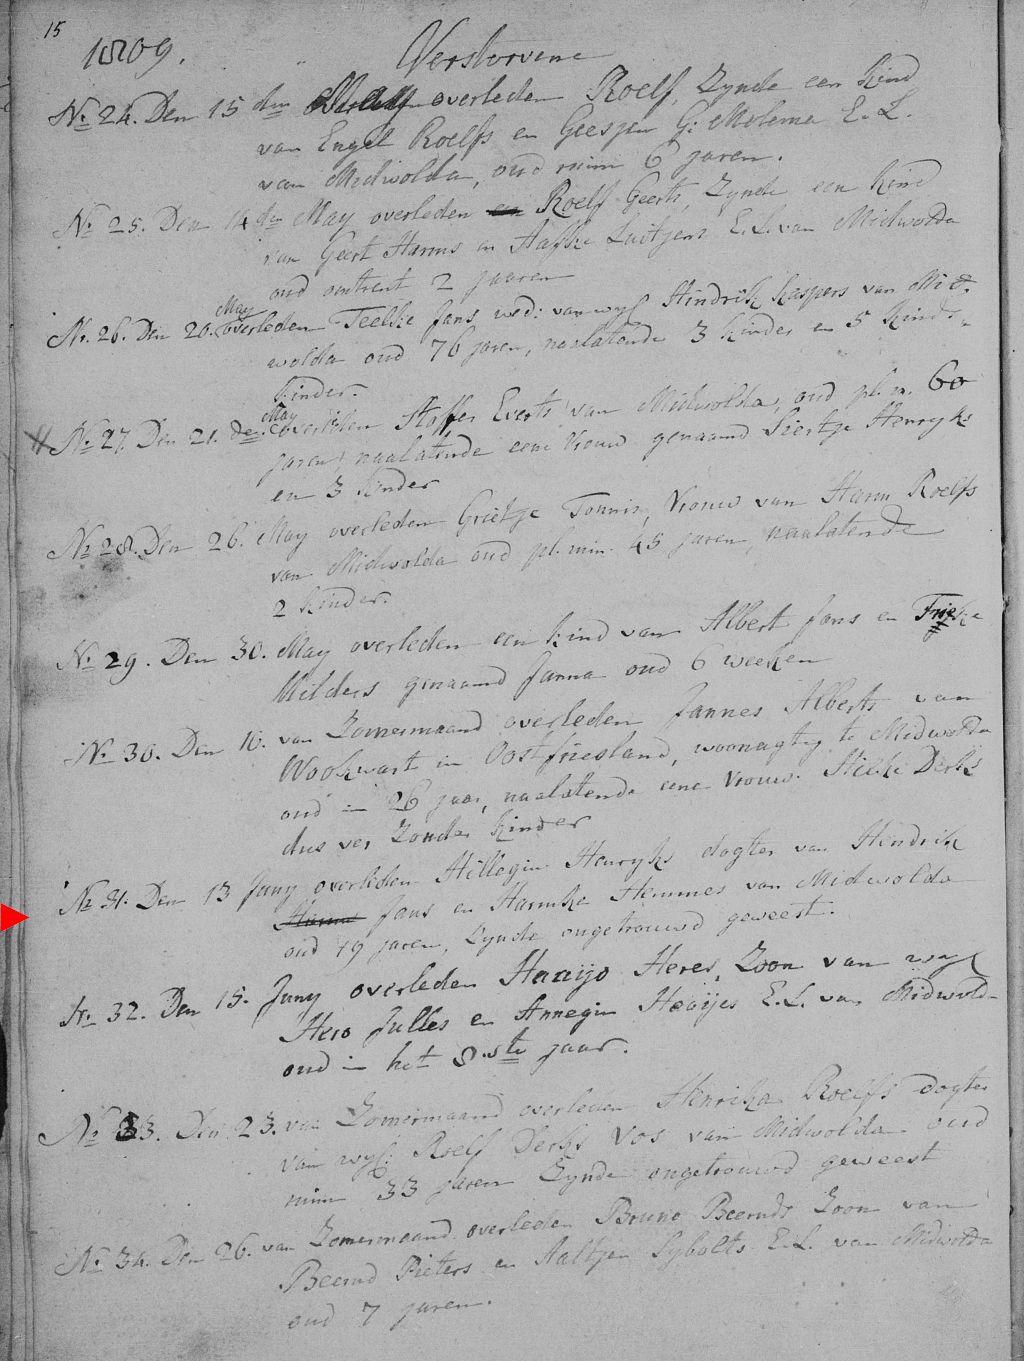 15
1809. Verstorvene
No 24. Den 15 den overleden Roelf, Zynde een kind
van Engel Roelfs en Geesjen G: Molema E. L.
van Midwolda, oud ruim 6 jaren.
No 25. Den 14 den May overleden Roelf Geerts, Zynde een kind
van Geert Harms en Aafke Luitjens E. L. van Midwolda
oud omtrent 2 jaaren
May
No. 26. Den 20. overleden Teelke Jans wed: van wyl Hindrik Kaspers van Mid-
wolda oud 76 jaren, naalatende 3 kinder en 5 kinds-
kinder.
May
No 27. Den 21. den overleden Stoffer Everts van Midwolda, oud pl. m. 60
jaren, naalatende eene Vrouw genaamd Siertje Henryks
en 3 kinder
No 28. Den 26. May overleden Grietje Tonnis, Vrouw van Harm Roelfs
van Midwolda oud pl. min. 45 jaren, naalatende
2 kinder.
No 29. Den 30. May overleden een kind van Albert Jans en
Milders genaamd Janna oud 6 weeken
No 30. Den 10. van Zomermaand overleden Jannes Alberts van
in Oostfriesland, woonagtig te Midwolda
oud in 26 jaar, naalatende eene Vrouw Derks
dus ver Zonder kinder
No 31. Den 13 Juny overleden Hillegin Henryks dogter van Hindrik
Jans en Harmke Hemmes van Midwolda
oud 19 jaren, Zynde ongetrouwd geweest.
No 32. Den 15. Juny overleden Haaijo Heres, Zoon van wyl
Hero Julles en Annegin Haaijes E. L. van Midwolda
oud in het 8.ste jaar.
No 33. Den 23. van Zomermaand overleden Henrika Roelfs dogter
van wyl: Roelf Derks Vos van Midwolda oud
ruim 33 jaren Zynde ongetrouwd geweest
No 34. Den 26. van Zomermaand overleden Bruno Beerends Zoon van
Beerend Pieters en Aaltjen Sybolts E. L. van Midwolda
oud 7 jaren.